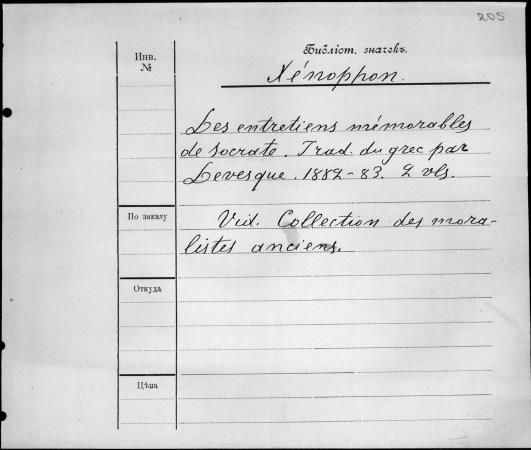 205
Библіот. значекъ.
Инв.
№
Xénophon.
Les entretiens mémorables
de Socrate. Trad. du grec par
Levesque. 1882-83. 2 vls.
По заказу
Vid. Collection des mora-
listes anciens.
Откуда
Цѣна